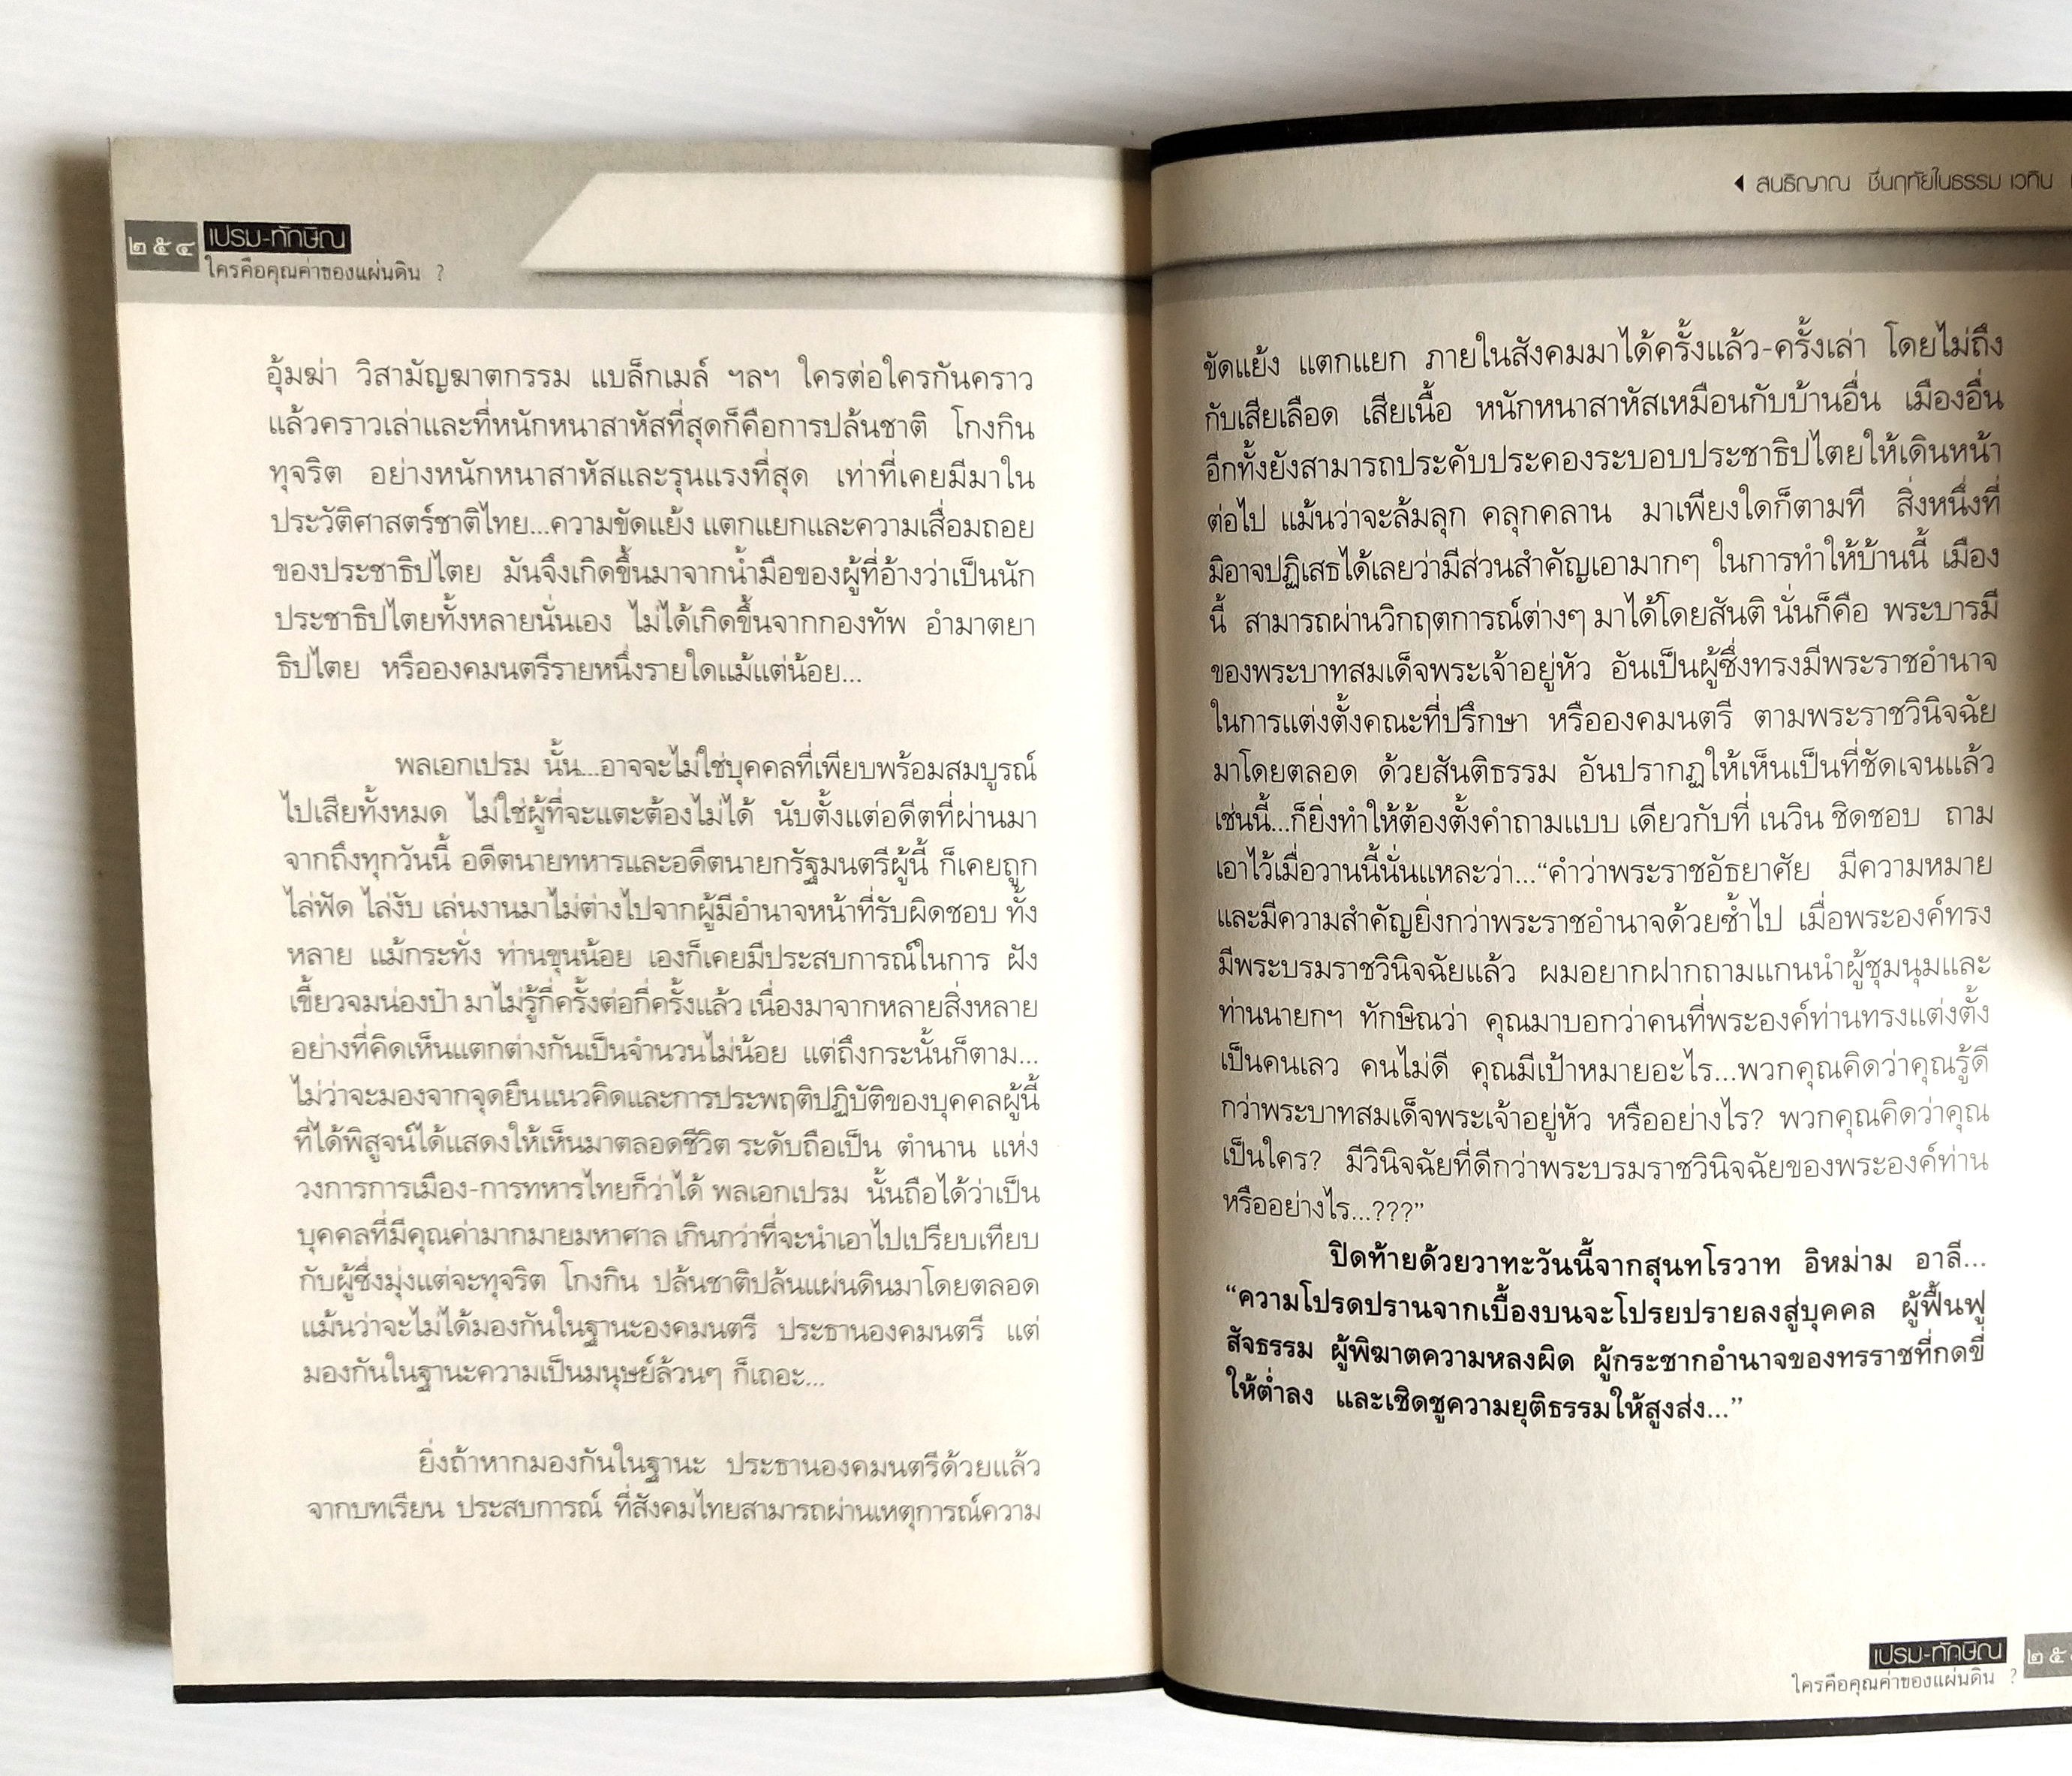 ๒๕๔ เปรม-ทักษิณ
ใครคือคุณค่าของแผ่นดิน ?
อุ้มฆ่า วิสามัญฆาตกรรม แบล็กเมล์ ฯลฯ ใครต่อใครกันคราว
แล้วคราวเล่าและที่หนักหนาสาหัสที่สุดก็คือการปล้นชาติ โกงกิน
ทุจริต อย่างหนักหนาสาหัสและรุนแรงที่สุด เท่าที่เคยมีมาใน
ประวัติศาสตร์ชาติไทย...ความขัดแย้ง แตกแยกและความเสื่อมถอย
ของประชาธิปไตย มันจึงเกิดขึ้นมาจากน้ำมือของผู้ที่อ้างว่าเป็นนัก
ประชาธิปไตยทั้งหลายนั่นเอง ไม่ได้เกิดขึ้นจากกองทัพ อำมาตยา
ธิปไตย หรือองคมนตรีรายหนึ่งรายใดแม้แต่น้อย...
พลเอกเปรม นั้น...อาจจะไม่ใช่บุคคลที่เพียบพร้อมสมบูรณ์
ไปเสียทั้งหมด ไม่ใช่ผู้ที่จะแตะต้องไม่ได้ นับตั้งแต่อดีตที่ผ่านมา
จากถึงทุกวันนี้ อดีตนายทหารและอดีตนายกรัฐมนตรีผู้นี้ ก็เคยถูก
ไล่ฟัด ไล่งับ เล่นงานมาไม่ต่างไปจากผู้มีอำนาจหน้าที่รับผิดชอบ ทั้ง
หลาย แม้กระทั่ง ท่านขุนน้อย เองก็เคยมีประสบการณ์ในการ ฝัง
เขี้ยวจมน่องป๋า มาไม่รู้กี่ครั้งต่อกี่ครั้งแล้ว เนื่องมาจากหลายสิ่งหลาย
อย่างที่คิดเห็นแตกต่างกันเป็นจำนวนไม่น้อย แต่ถึงกระนั้นก็ตาม...
ไม่ว่าจะมองจากจุดยืนแนวคิดและการประพฤติปฏิบัติของบุคคลผู้นี้
ที่ได้พิสูจน์ได้แสดงให้เห็นมาตลอดชีวิต ระดับถือเป็น ตำนาน แห่ง
วงการการเมือง-การทหารไทยก็ว่าได้ พลเอกเปรม นั้นถือได้ว่าเป็น
บุคคลที่มีคุณค่ามากมายมหาศาล เกินกว่าที่จะนำเอาไปเปรียบเทียบ
กับผู้ซึ่งมุ่งแต่จะทุจริต โกงกิน ปล้นชาติปล้นแผ่นดินมาโดยตลอด
แม้นว่าจะไม่ได้มองกันในฐานะองคมนตรี ประธานองคมนตรี แต่
มองกันในฐานะความเป็นมนุษย์ล้วนๆ ก็เถอะ...
ยิ่งถ้าหากมองกันในฐานะ ประธานองคมนตรีด้วยแล้ว
จากบทเรียน ประสบการณ์ ที่สังคมไทยสามารถผ่านเหตุการณ์ความ
สนธิญาณ ชื่นฤทัยในธรรม เวทิน
ขัดแย้ง แตกแยก ภายในสังคมมาได้ครั้งแล้ว-ครั้งเล่า โดยไม่ถึง
กับเสียเลือด เสียเนื้อ หนักหนาสาหัสเหมือนกับบ้านอื่น เมืองอื่น
อีกทั้งยังสามารถประคับประคองระบอบประชาธิปไตยให้เดินหน้า
ต่อไป แม้นว่าจะล้มลุก คลุกคลาน มาเพียงใดก็ตามที สิ่งหนึ่งที่
มิอาจปฏิเสธได้เลยว่ามีส่วนสำคัญเอามากๆ ในการทำให้บ้านนี้ เมือง
นี้ สามารถผ่านวิกฤตการณ์ต่างๆ มาได้โดยสันติ นั่นก็คือ พระบารมี
ของพระบาทสมเด็จพระเจ้าอยู่หัว อันเป็นผู้ซึ่งทรงมีพระราชอำนาจ
ในการแต่งตั้งคณะที่ปรึกษา หรือองคมนตรี ตามพระราชวินิจฉัย
มาโดยตลอด ด้วยสันติธรรม อันปรากฏให้เห็นเป็นที่ชัดเจนแล้ว
เช่นนี้...ก็ยิ่งทำให้ต้องตั้งคำถามแบบ เดียวกับที่ เนวิน ชิดชอบ ถาม
เอาไว้เมื่อวานนี้นั่นแหละว่า...“คำว่าพระราชอัธยาศัย มีความหมาย
และมีความสำคัญยิ่งกว่าพระราชอำนาจด้วยซ้ำไป เมื่อพระองค์ทรง
มีพระบรมราชวินิจฉัยแล้ว ผมอยากฝากถามแกนนำผู้ชุมนุมและ
ท่านนายกฯ ทักษิณว่า คุณมาบอกว่าคนที่พระองค์ท่านทรงแต่งตั้ง
เป็นคนเลว คนไม่ดี คุณมีเป้าหมายอะไร...พวกคุณคิดว่าคุณรู้ดี
กว่าพระบาทสมเด็จพระเจ้าอยู่หัว หรืออย่างไร? พวกคุณคิดว่าคุณ
เป็นใคร? มีวินิจฉัยที่ดีกว่าพระบรมราชวินิจฉัยของพระองค์ท่าน
หรืออย่างไร...???”
ปิดท้ายด้วยวาทะวันนี้จากสุนทโรวาท อิหม่าม อาลี...
“ความโปรดปรานจากเบื้องบนจะโปรยปรายลงสู่บุคคล ผู้ฟื้นฟู
สัจธรรม ผู้พิฆาตความหลงผิด ผู้กระชากอำนาจของทรราชที่กดขี่
ให้ต่ำลง และเชิดชูความยุติธรรมให้สูงส่ง...”
เปรม-ทักษิณ
ใครคือคุณค่าของแผ่นดิน ?